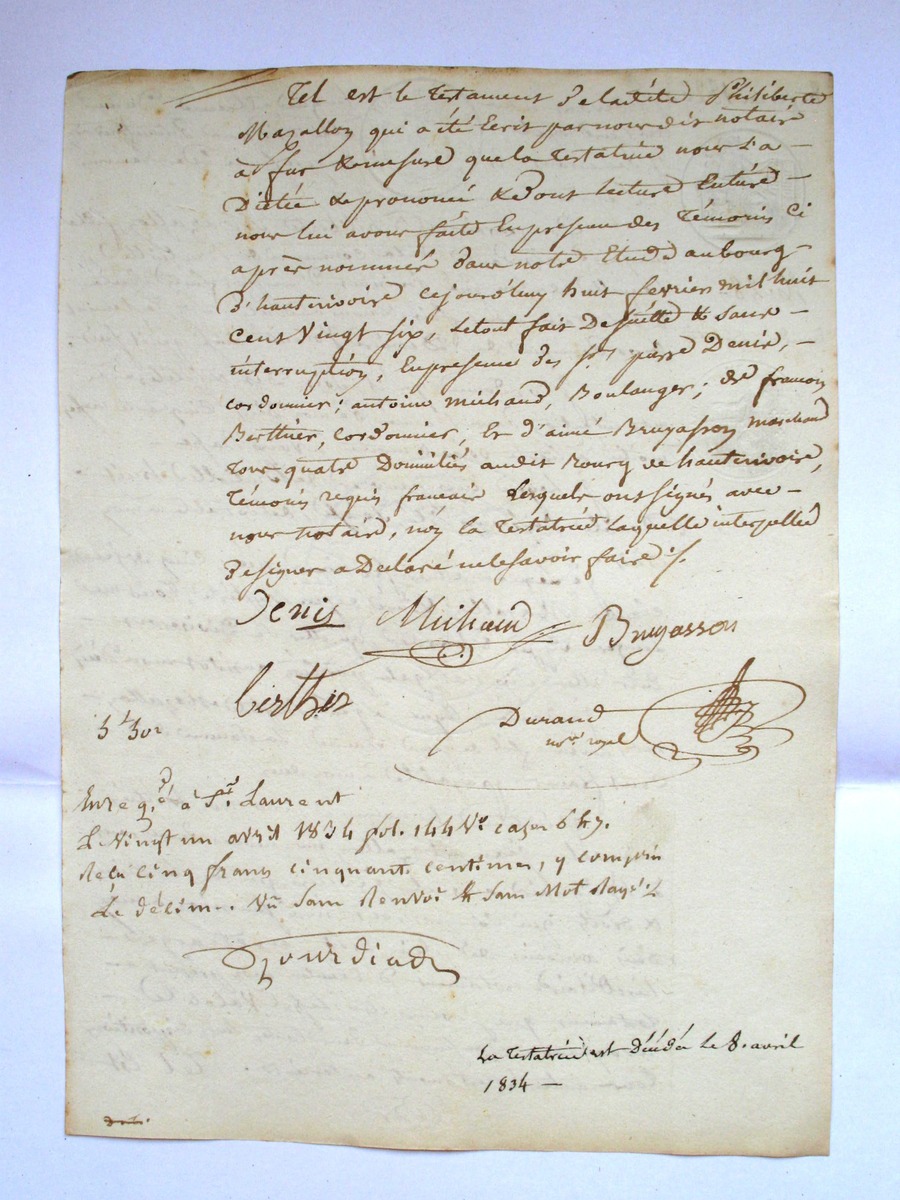 Tel est le Testament de la dite Philiberte
Mazallon qui a été Ecrit par nous dit notaire
à fur & mesure que la Testatrice nous l'a —
Dictée & prononcé & Dont lecture Entiere —
nous lui avons faite En presence des Témoins Ci
après nommés dans notre Etude au bourg —
d'hauterivoire cejourd'huy huit fevrier mil huit
Cent Vingt Six, le tout fait De suitte & Sans —
interruption, En presence des Srs pierre Denis, —
Cordonnier; antoine Michaud, Boulanger; de francois
Berthier, Cordonnier, Et d'aimé Bruyasson marchand
Tous quatre Domiciliés audit Bourg de hauterivoire,
Témoins requis francais lesquels ont signés avec —
nous notaire, non la Testatrice laquelle interpellée
de signer a Declaré ne le savoir faire ./.
Denis Michaud Bruyasson
berthier
Durand
nore royal
5f 50c
Enregé à St. Laurent
Le Vingt un avril 1834 fol. 144 Vo cases 6 & 7.
Recu cinq francs cinquante centimes, y compris
Le décime. Vu Sans Renvoi & Sans Mot Rayé ./.
La Testatrice est Décédé Le 8. avril
1834 —